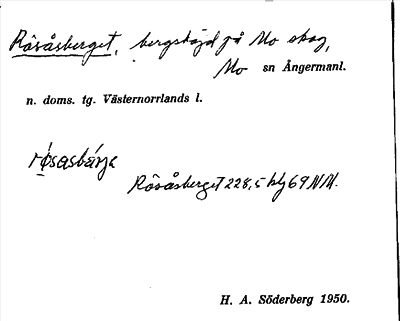 Rösåsberget, bergshöjd på Mo skog,
Mo sn Ångermanl.
n. doms. tg. Västernorrlands l.
røsasbárje
Rösåsberget 228,5 blg 69 NM.
H. A. Söderberg 1950.